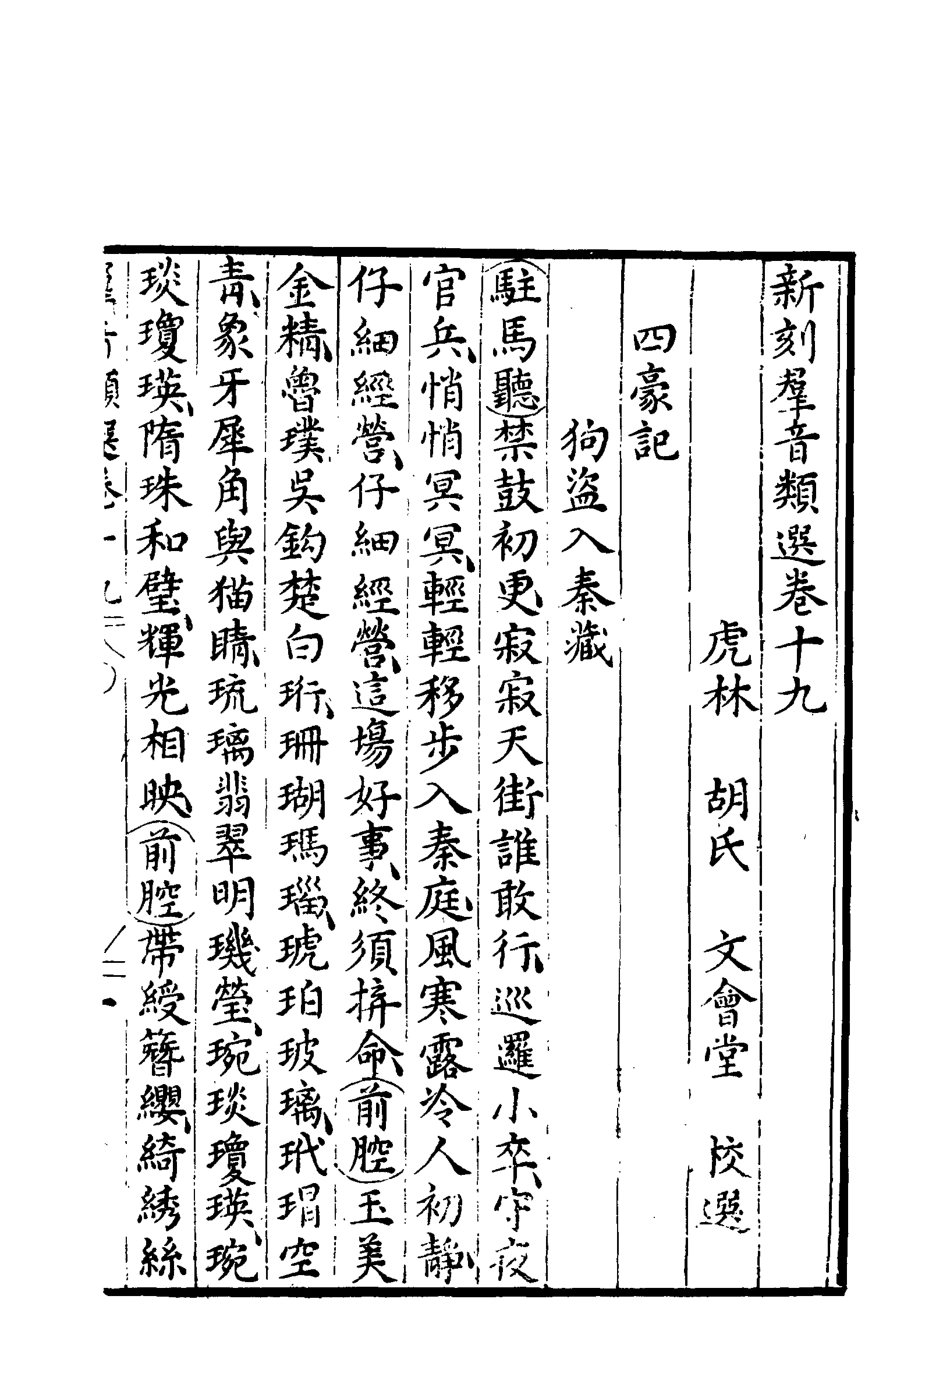 新刻羣音類選卷十九
虎林 胡氏 文會堂 校選
四豪記
狗盜入秦藏
駐馬聽禁鼓初更寂寂天街誰敢行巡邏小卒守夜
官兵悄悄冥冥輕輕移步入秦庭風寒露冷人初靜
仔細經營仔細經營這場好事終須拚命前腔玉美
金精魯璞吳鈎楚白珩珊瑚瑪瑙琥珀玻璃玳瑁空
青象牙犀角與猫睛琉璃翡翠明璣瑩琬琰瓊瑛琬
琰瓊瑛隋珠和璧輝光相映前腔帶綬簪纓綺綉絲
羣音類選卷十九